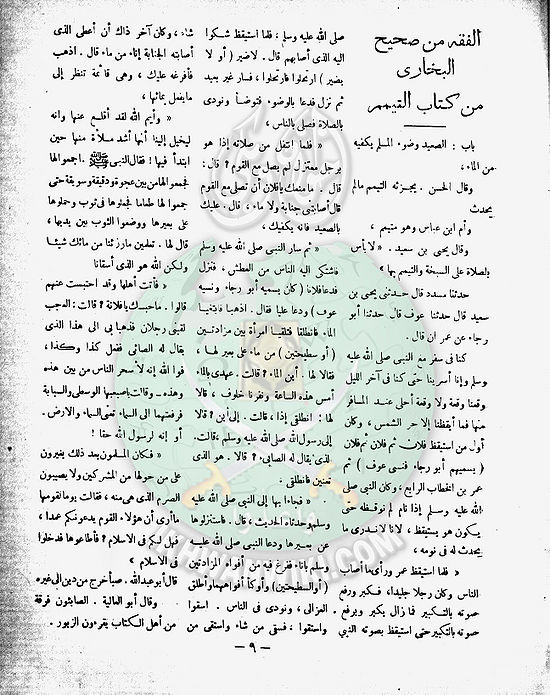 الفقه من صحيح
البخارى
من كتاب التيمم
باب : الصعيد وضوء المسلم يكفيه
من الماء ،
وقال الحسن . يجزئه التيمم مالم
يحدث
وأم ابن عباس وهو متيمم ،
وقال يحيى بن سعيد . « لا بأس
بالصلاة على السبخة والتيمم بها »
حدثنا مسدد قال حدثنى يحيى بن
سعيد قال حدثنا عوف قال حدثنا أبو
رجاء عن عمران قال .
كنا فى سفر مع النبى صلى الله عليه
وسلم وإنا أسرينا حتى كنا فى آخر الليل
وقعنا وقعة ولا وقعة أحلى عند المسافر
منها فما أيقظنا إلا حر الشمس ، وكان
أول من استيقظ فلان ثم فلان ثم فلان
( يسميهم أبو رجاء فنسى عوف ) ثم
عمر بن الخطاب الرابع ، وكان النبى صلى
الله عليه وسلم إذا نام لم نوقظه حتى
يكون هو يستيقظ ، لانا لاندرى ما
يحدث له فى نومه ،
« فلما استيقظ عمر ورأى ما أصاب
الناس وكان رجلا جليدا ، فكبر ورفع
صوته بالتكبير فما زال يكبر ويرفع
صوته بالتكبير حتى استيقظ بصوته النبي
صلى الله عليه وسلم ، فلما استيقظ شكوا
اليه الذى أصابهم قال . لاضير ( أو لا
يضير ) ارتحلوا فارتحلوا ، فسار غير بعيد
ثم نزل فدعا بالوضوء فتوضأ ونودى
بالصلاة فصلى بالناس ،
« فلما انتفل من صلاته إذا هو
برجل معتزل لم يصل مع القوم ؟ قال :
قال . ما منعك يافلان أن تصلى مع القوم
قال أصابتنى جنابة ولا ماء ، قال . عليك
بالصعيد فانه يكفيك ،
« ثم سار النبى صلى الله عليه وسلم
فاشتكى اليه الناس من العطش ، فنزل
فدعا فلانا ( كان يسميه أبو رجاء ونسيه
عوف ) ودعا عليا فقال . اذهبا فابتغيا
الماء فانطلقا فتلقيا امرأة بين مزادتين
( أو سطيحتين ) من ماء على بعير لها ،
فقالا لها . أين الماء ؟ قالت . عهدى بالماء
أمس هذه الساعة ونفرنا خلوف ، قالا
لها : انطلقى إذا ، قالت . إلى أين ؟ قالا
إلى رسول الله صلى الله عليه وسلم ، قالت .
الذى يقال له الصابى ؟ قالا . هو الذى
تعنين فانطلقى .
« فجاءا بها إلى النبى صلى الله عليه
وسلم وحدثاه الحديث ، قال . فاستنزلوها
عن بعيرها ودعا النبى صلى الله عليه
وسلم باناء ففرغ فيه من أفواه المزادتين
( أو السطيحتين ) وأوكأ أفواههما وأطلق
العزالى ، ونودى فى الناس . اسقوا
واستقوا ، فسقى من شاء واستقى من
شاء ، وكان آخر ذاك أن أعطى الذى
أصابته الجنابة إناء من ماء قال . اذهب
فأفرغه عليك ، وهى قائمة تنظر إلى
ما يفعل بمائها ،
« وأيم الله لقد أقلع عنها وانه
ليخيل إلينا أنها أشد ملأة منها حين
ابتدأ فيها ! فقال النبى ﷺ . اجمعوا لها
فجمعوا لها من بين عجوة ودقيقة وسويقة حتى
جمعوا لها طعاما فجعلوها فى ثوب وحملوها
على بعيرها ووضعوا الثوب بين يديها ،
قال لها . تعلمين مارزئنا من مائك شيئا
ولكن الله هو الذى أسقانا
« فأتت أهلها وقد احتبست عنهم
قالوا . ماحبسك يافلانة ؟ قالت : العجب
لقينى رجلان فذهبا بى الى هذا الذى
يقال له الصابى ففعل كذا وكذا ،
فوا الله إنه لأسحر الناس من بين هذه
وهذه ــ وقالت باصبعيها الوسطى والسبابة
فرفعتهما الى السماء تعنى السماء والارض .
أو إنه لرسول الله حقا !
« فكان المسلمون بعد ذلك يغيرون
على من حولها من المشركين ولا يصيبون
الصرم الذى هى منه ، فقالت يوما لقومها
ما أرى أن هؤلاء القوم يدعونكم عمدا ،
فهل لكم فى الاسلام ؟ فأطاعوها فدخلوا
فى الاسلام »
قال أبو عبد الله . صبأ خرج من دين الى غيره
وقال أبو العالية . الصابئون فرقة
من أهل الكتاب يقرءون الزبور .
— ٩ —
IKHWANWIKI.COM